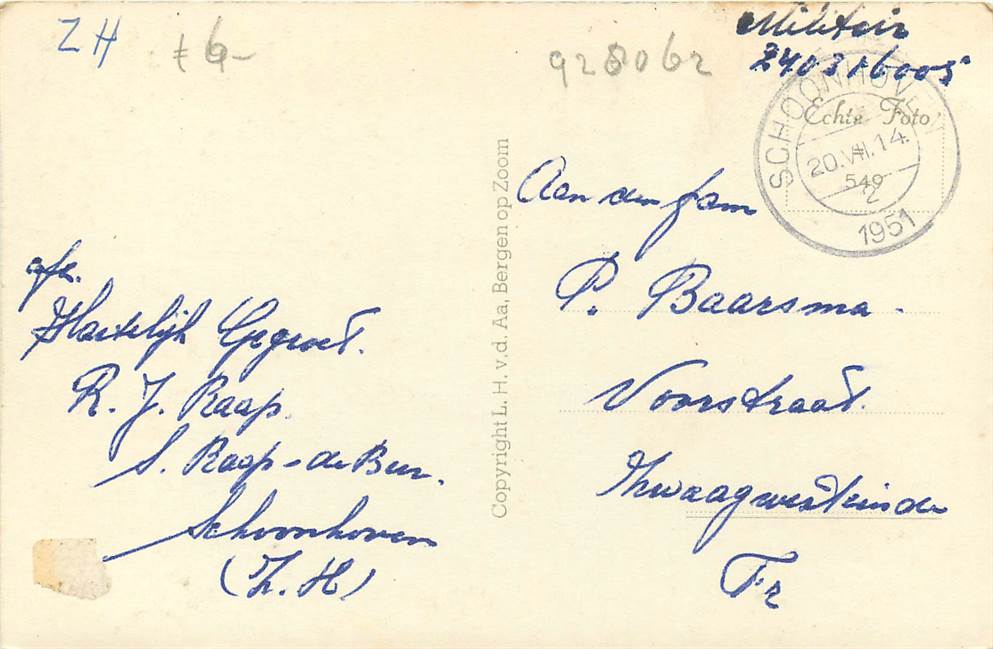 ZH
6-
928062
Militair
240316005
Echte Foto
SCHOONHOVEN
20.VII.14
549
2
1951
Aan den fam
P. Baarsma.
Voorstraat.
Zwaagwesteinde
Fr
Copyright L. H. v.d. Aa, Bergen op Zoom
afz.
Hartelijk Gegroet.
R. J. Raap.
S. Raap-de Bur.
Schoonhoven
(Z. H)